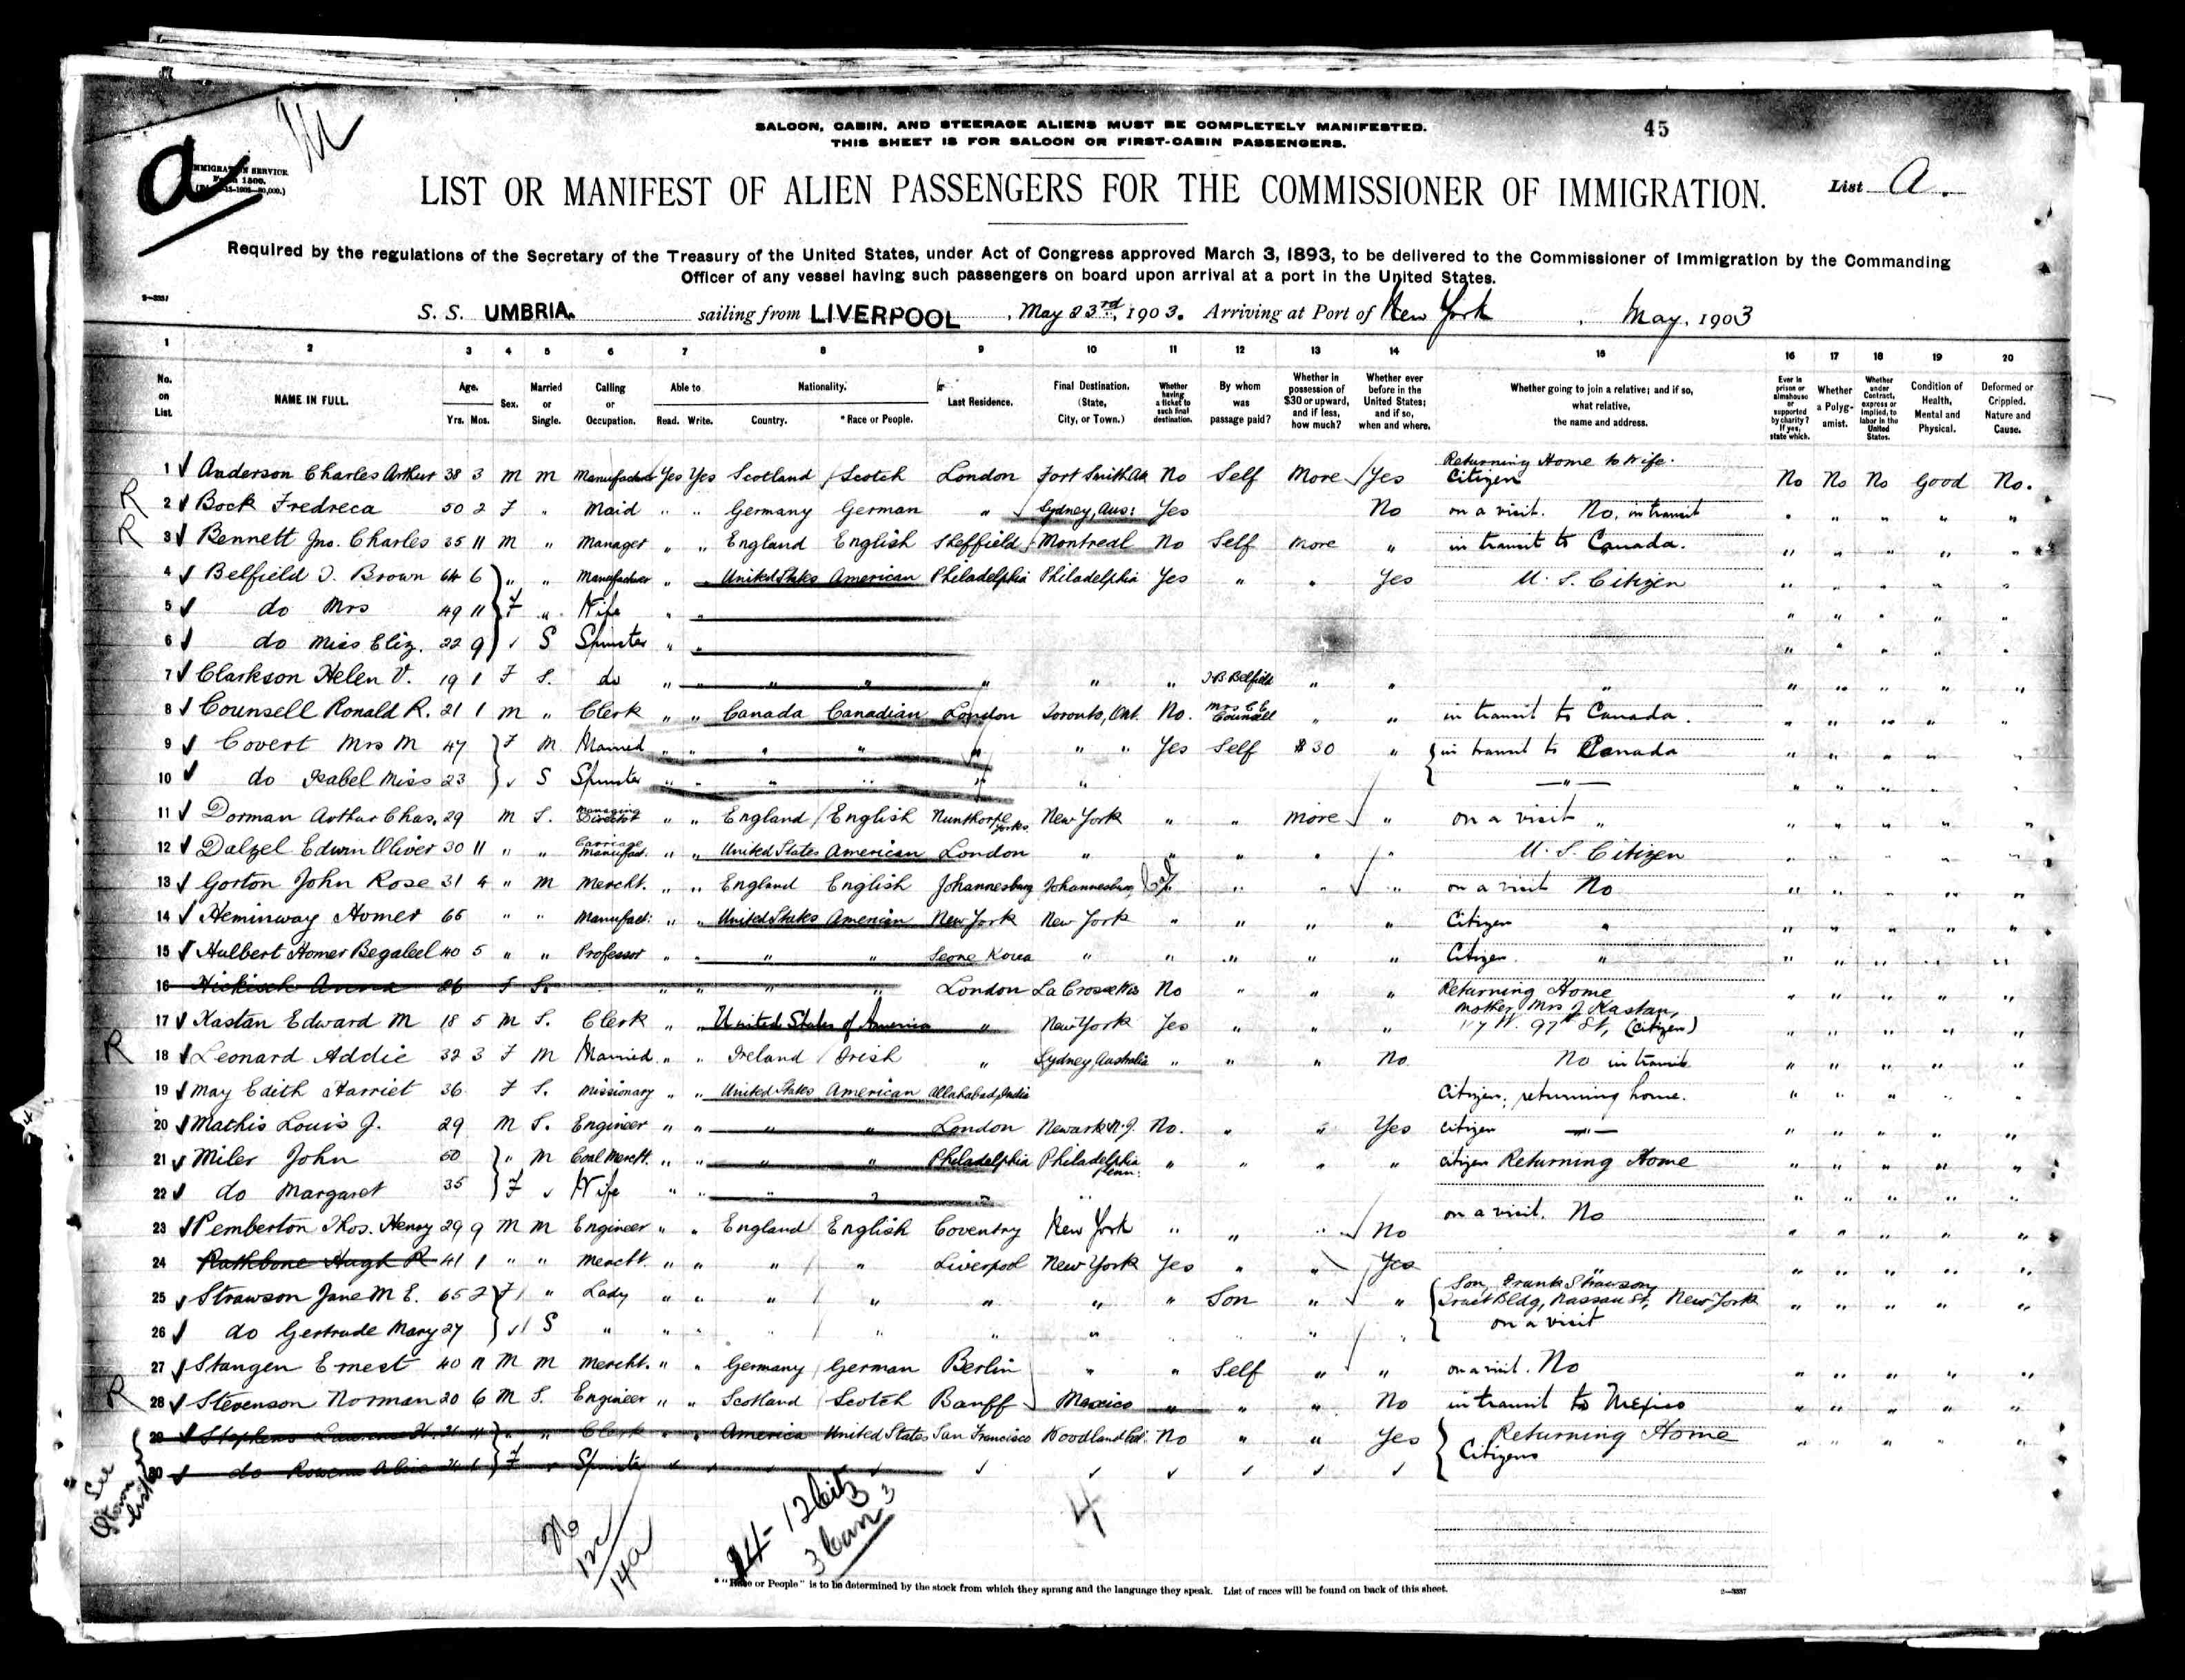 SALOON, CABIN, AND STEERAGE ALIENS MUST BE COMPLETELY MANIFESTED.
THIS SHEET IS FOR SALOON OR FIRST-CABIN PASSENGERS.
45
a
LIST OR MANIFEST OF ALIEN PASSENGERS FOR THE COMMISSIONER OF IMMIGRATION.
List A.
Required by the regulations of the Secretary of the Treasury of the United States, under Act of Congress approved March 3, 1893, to be delivered to the Commissioner of Immigration by the Commanding
Officer of any vessel having such passengers on board upon arrival at a port in the United States.
S. S. UMBRIA. sailing from LIVERPOOL, May 23rd, 1903. Arriving at Port of New York, May, 1903
1 2 3 4 5 6 7 8 9 10 11 12 13 14 15 16 17 18 19 20
No. on List. NAME IN FULL. Age. Yrs. Mos. Sex. Married or Single. Calling or Occupation. Able to Read. Write. Nationality. Country. *Race or People. Last Residence. Final Destination. (State, City, or Town.) Whether having a ticket to such final destination. By whom was passage paid? Whether in possession of $30 or upward, and if less, how much? Whether ever before in the United States; and if so, when and where. Whether going to join a relative; and if so, what relative, the name and address. Ever in prison or almshouse or supported by charity? If yes, state which. Whether a Polygamist. Whether under Contract, express or implied, to labor in the United States. Condition of Health, Mental and Physical. Deformed or Crippled. Nature and Cause.
1 Anderson Charles Arthur 38 3 m m Manufacturer Yes Yes Scotland Scotch London Fort Smith Ark No Self More Yes Returning Home to Wife. Citizen No No No Good No.
R 2 Bock Fredreca 50 2 F " Maid " " Germany German " Sydney, Aus: Yes No on a visit. No, in transit " " " " "
R 3 Bennett Jno. Charles 35 11 m " Manager " " England English Sheffield Montreal No Self more " in transit to Canada. " " " " "
4 Belfield T. Brown 64 6 " " Manufacturer " " United States American Philadelphia Philadelphia Yes " " Yes U. S. Citizen " " " " "
5 do Mrs 49 11 F " Wife " " " " " " "
6 do Miss Eliz. 22 9 " S Spinster " " " " " " "
7 Clarkson Helen V. 19 1 F S. do " " " " " " " T B Belfield " " " " " " " "
8 Counsell Ronald R. 21 1 m " Clerk " " Canada Canadian London Toronto, Ont. No. Mrs C E Counsell " " in transit to Canada. " " " " "
9 Covert Mrs M 47 F M. Married " " " " " " " Yes Self $30 " in transit to Canada " " " " "
10 do Isabel Miss 23 " S Spinster " " " " " " " " " " " "
11 Dorman Arthur Chas. 29 m S. Managing Director " " England English Nunthorpe Yorks New York " " more " on a visit " " " " " "
12 Dalzel Edwin Oliver 30 11 " " Carriage Manufact. " " United States American London " " " " " U. S. Citizen " " " " "
13 Gorton John Rose 31 4 " m Mercht. " " England English Johannesburg Johannesburg " " " on a visit No " " " " "
14 Heminway Homer 65 " " Manufact: " " United States American New York New York " " " " Citizen " " " " " "
15 Hulbert Homer Bezaleel 40 5 " " Professor " " " " Seone Korea " " " " " Citizen. " " " " " "
16 Hickisch Anna 26 F S. " " " " London La Crosse Wis No " " " Returning Home " " " " "
17 Kastan Edward M 18 5 M S. Clerk " " United States of America " New York Yes " " " Mother, Mrs J Kastan, 117 W. 97th St, (Citizen) " " " " "
R 18 Leonard Addie 32 3 F M Married " " Ireland Irish " Sydney, Australia " " " No No in transit " " " " "
19 May Edith Harriet 36 F S. Missionary " " United States American Allahabad, India Citizen; returning home. " " " " "
20 Mathis Louis J. 29 M S. Engineer " " " " London Newark N.J. No. " " Yes Citizen " " " " " "
21 Miler John 50 " m Coal Mercht. " " " " Philadelphia Philadelphia Penn: " " " " citizen Returning Home " " " " "
22 do Margaret 35 F " Wife " " " " " " " " " " "
23 Pemberton Thos. Henry 29 9 m m Engineer " " England English Coventry New York " " " No on a visit. No " " " " "
24 Rathbone Hugh R 41 1 " " Mercht. " " " " Liverpool New York Yes " " Yes " " " " " "
25 Strawson Jane M E. 65 2 F " Lady " " " " " " " Son " " Son, Frank Strawson, Tract Bldg, Nassau St, New York " " " " "
26 do Gertrude Mary 27 " S " " " " " " " " " on a visit
27 Stangen Ernest 40 11 M m Mercht. " " Germany German Berlin " " Self " " on a visit. No " " " " "
R 28 Stevenson Norman 20 6 M S. Engineer " " Scotland Scotch Banff Mexico " " " No in transit to Mexico " " " " "
29 Stephens Lawrence H. 21 11 " " Clerk " " America United States San Francisco Woodland Cal. No " " Yes Returning Home Citizens " " " " "
30 do Rowena Alice 24 1 F " Spinster
See
list
No
14a
24- 12 Citz 3
3 Can 3
4
* "Race or People" is to be determined by the stock from which they sprang and the language they speak. List of races will be found on back of this sheet.
2—3337